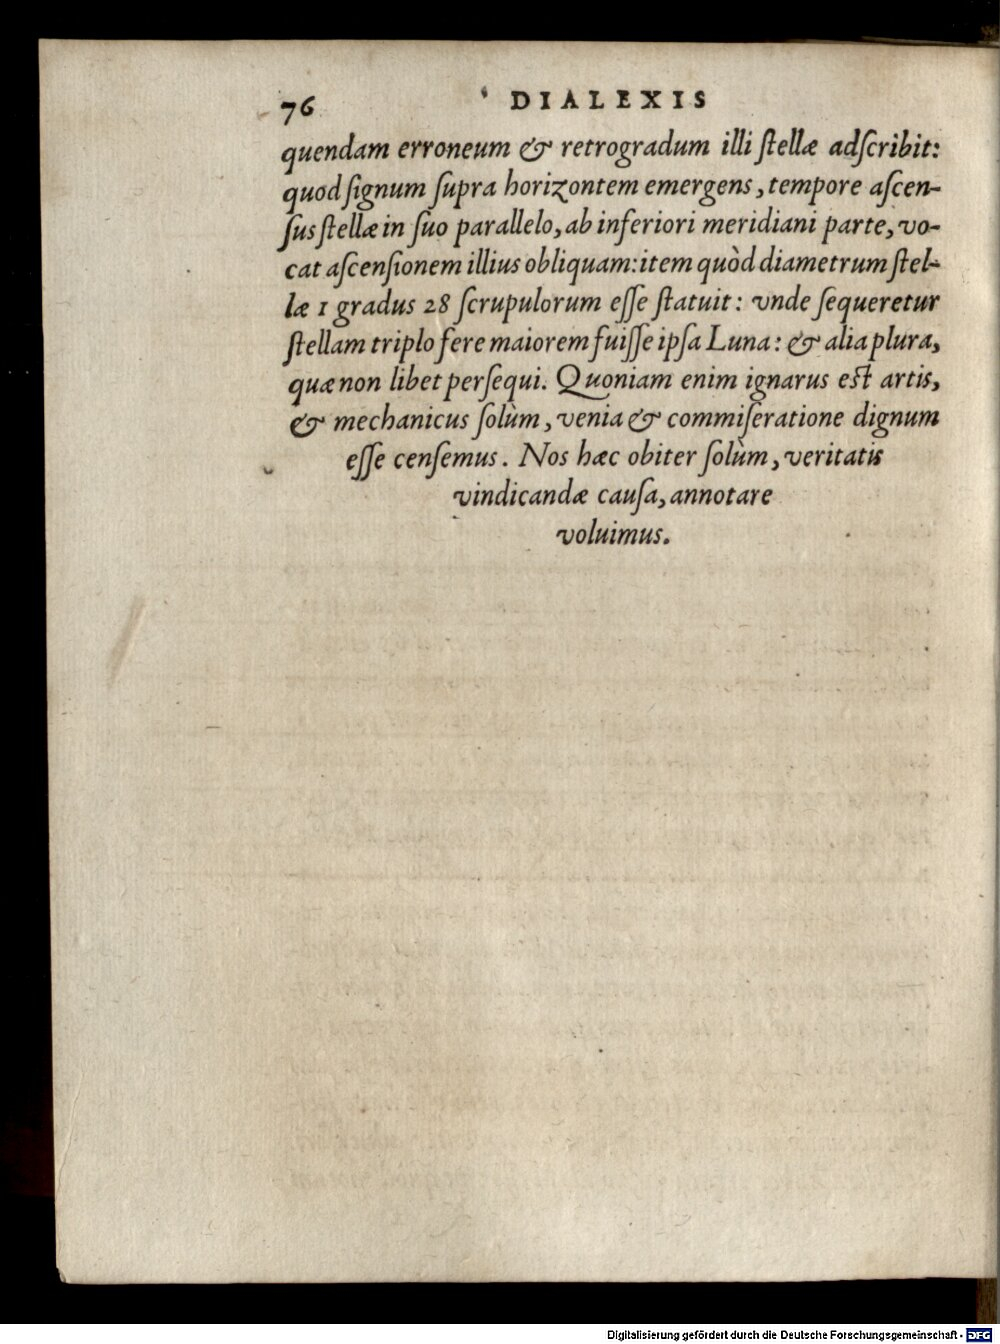 76 DIALEXIS
quendam erroneum & retrogradum illi ſtellæ adſcribit:
quod ſignum ſupra horizontem emergens, tempore aſcen-
ſus ſtellæ in ſuo parallelo, ab inferiori meridiani parte, vo-
cat aſcenſionem illius obliquam: item quòd diametrum ſtel-
læ 1 gradus 28 ſcrupulorum eſſe ſtatuit: vnde ſequeretur
ſtellam triplo fere maiorem fuiſſe ipſa Luna: & alia plura,
quæ non libet perſequi. Quoniam enim ignarus eſt artis,
& mechanicus ſolùm, venia & commiſeratione dignum
eſſe cenſemus. Nos hæc obiter ſolùm, veritatis
vindicandæ cauſa, annotare
voluimus.
Digitalisierung gefördert durch die Deutsche Forschungsgemeinschaft - DFG